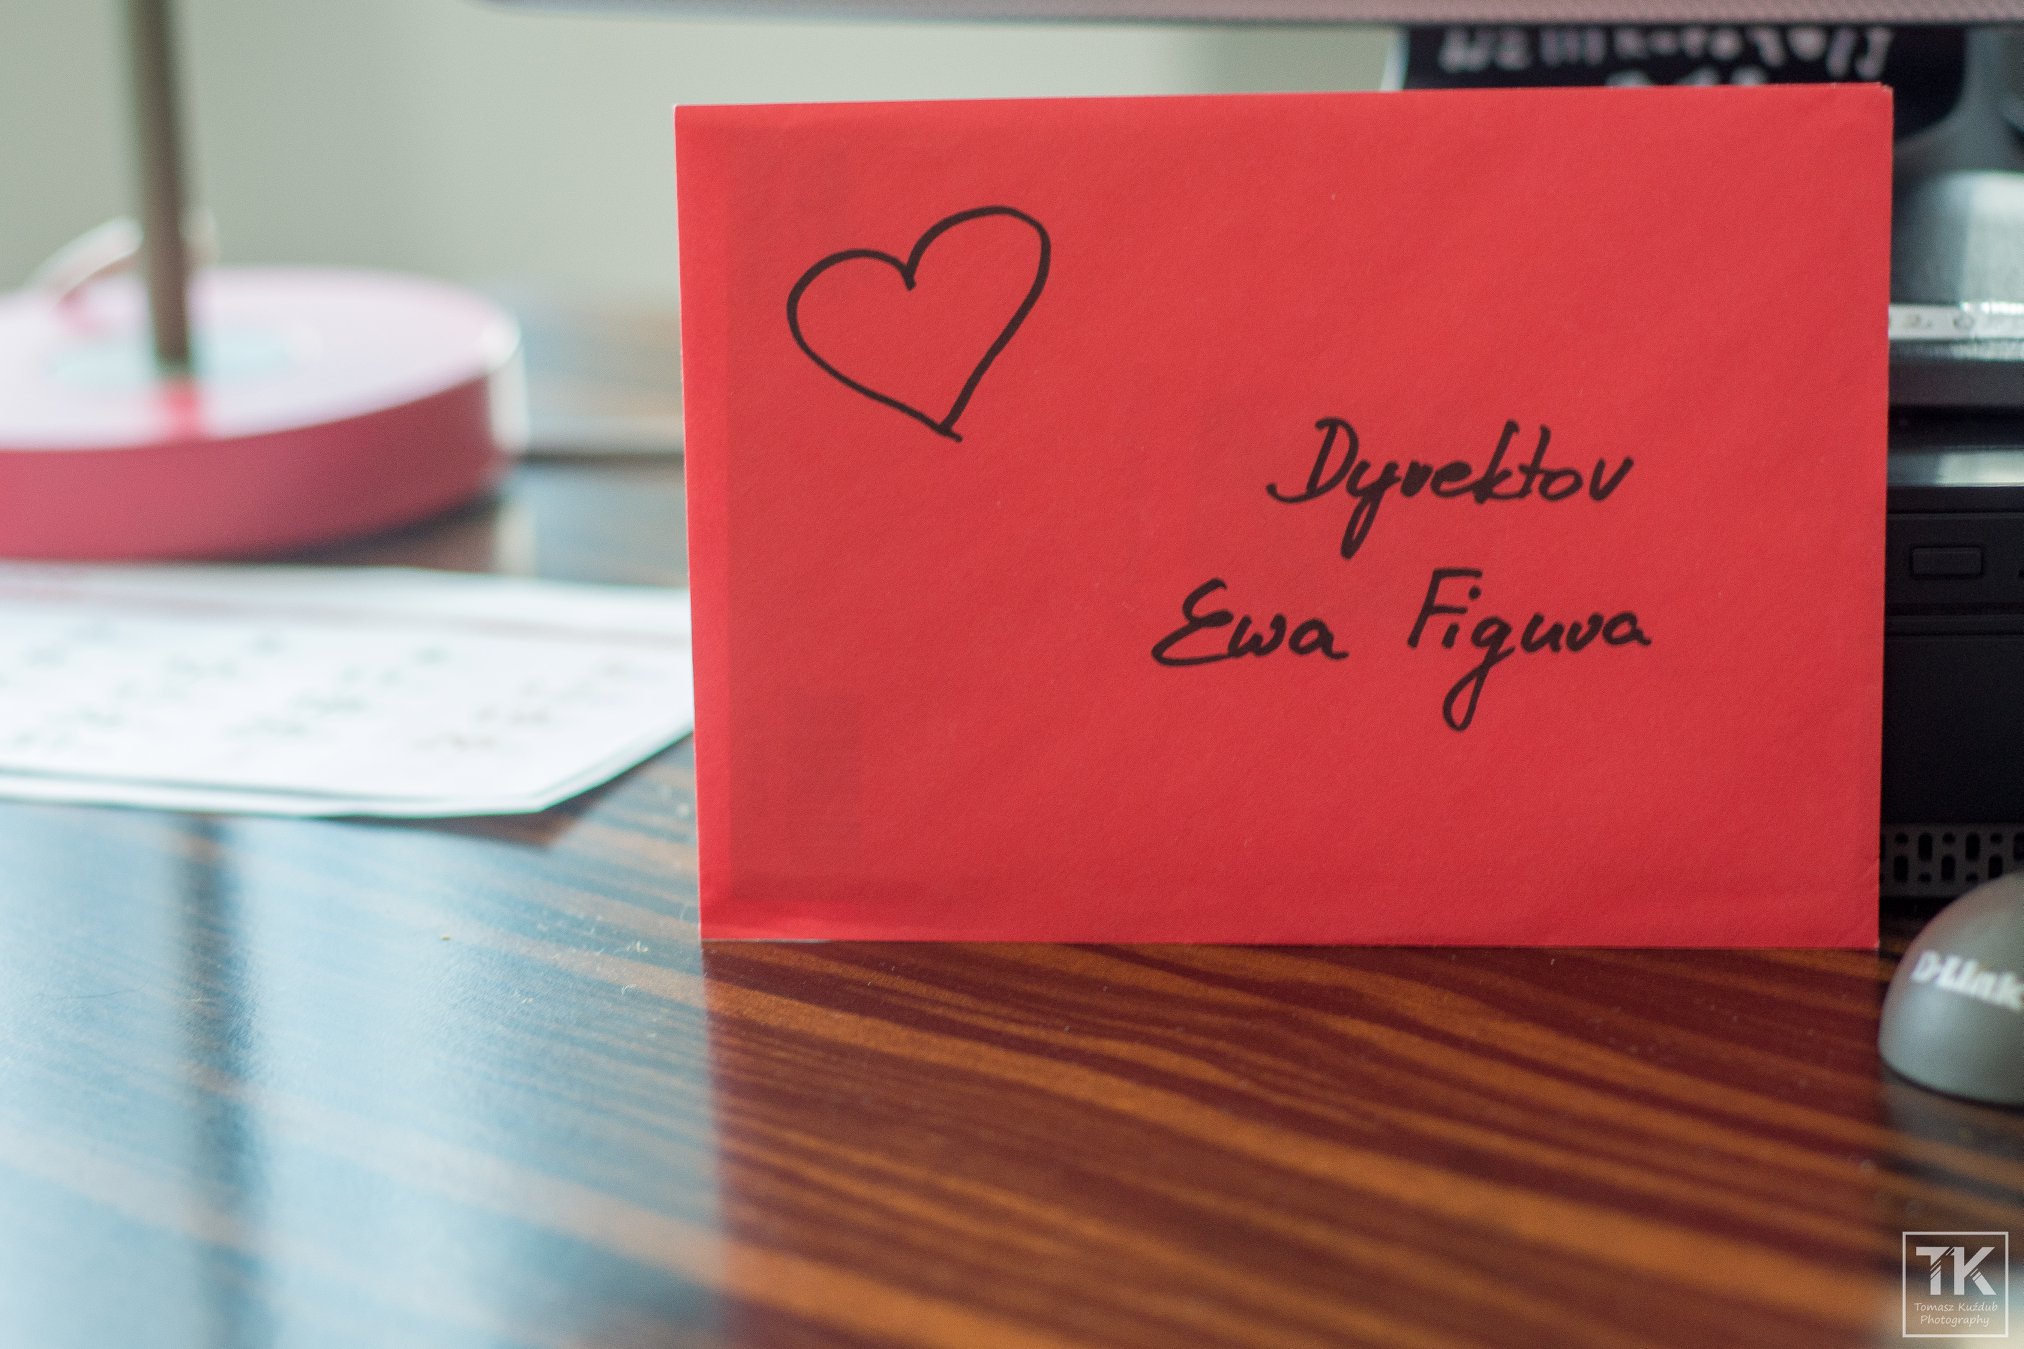 Dyrektor
Ewa Figura
D-Link
TK
Tomasz Kuźdub
Photography